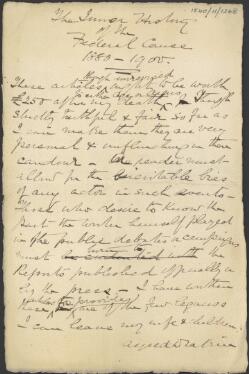 1540/11/1268
The Inner History
of the
Federal Cause
1880 - 1900.
though unrevised
These articles ought to be worth
to the Deakin
£250 after my death, though
strictly truthful & fair so far as
I can make them they are very
personal & unflinching in their
candour - the reader must
allow for the inevitable bias
of any actor in such events -
Those who desire to know the
part the writer himself played
in the public debates & campaigns
must with the
Reports published officially or
by the press - I have written
these to provide one of the few legacies
I can leave my wife & children,